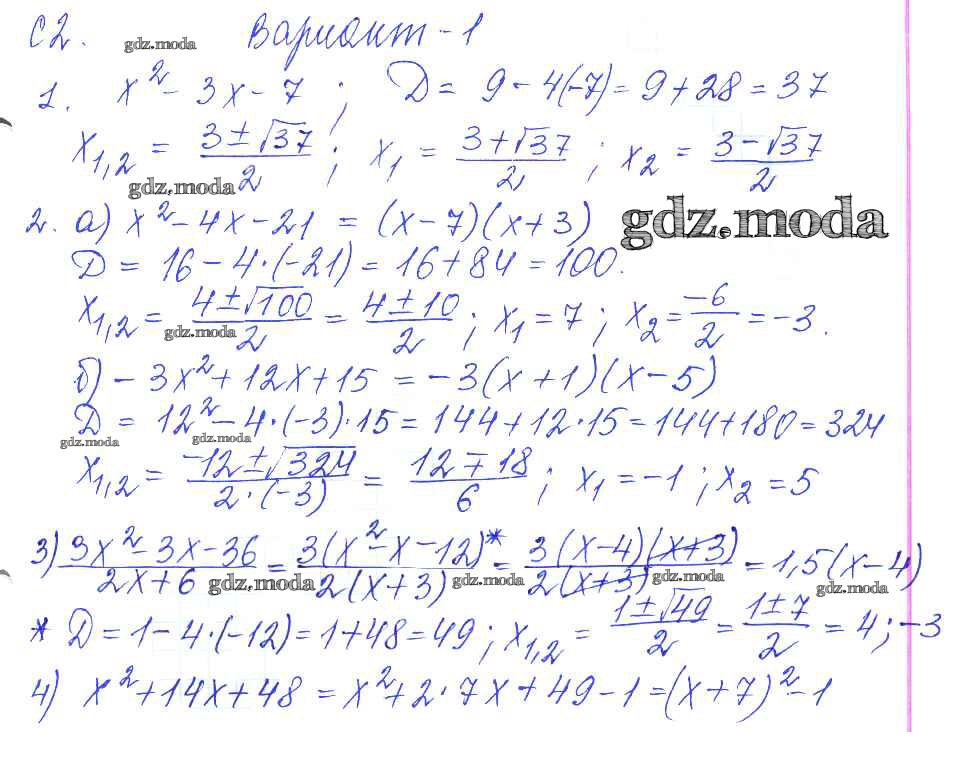 С2. gdz.moda Вариант - 1
1. x² - 3x - 7 ; D = 9 - 4(-7) = 9 + 28 = 37
x₁,₂ = (3 ± √37)/2 ; x₁ = (3 + √37)/2 ; x₂ = (3 - √37)/2
gdz.moda
2. а) x² - 4x - 21 = (x - 7)(x + 3) gdz.moda
D = 16 - 4·(-21) = 16 + 84 = 100.
x₁,₂ = (4 ± √100)/2 = (4 ± 10)/2 ; x₁ = 7 ; x₂ = -6/2 = -3.
gdz.moda
б) - 3x² + 12x + 15 = -3(x + 1)(x - 5)
D = 12² - 4·(-3)·15 = 144 + 12·15 = 144 + 180 = 324
gdz.moda gdz.moda
x₁,₂ = (-12 ± √324)/(2·(-3)) = (12 ∓ 18)/6 ; x₁ = -1 ; x₂ = 5
3) (3x² - 3x - 36)/(2x + 6) = 3(x² - x - 12)*/(2(x + 3)) = 3(x - 4)(x + 3)/(2(x + 3)) = 1,5(x - 4)
gdz.moda gdz.moda gdz.moda gdz.moda
* D = 1 - 4·(-12) = 1 + 48 = 49 ; x₁,₂ = (1 ± √49)/2 = (1 ± 7)/2 = 4 ; -3
4) x² + 14x + 48 = x² + 2·7x + 49 - 1 = (x + 7)² - 1